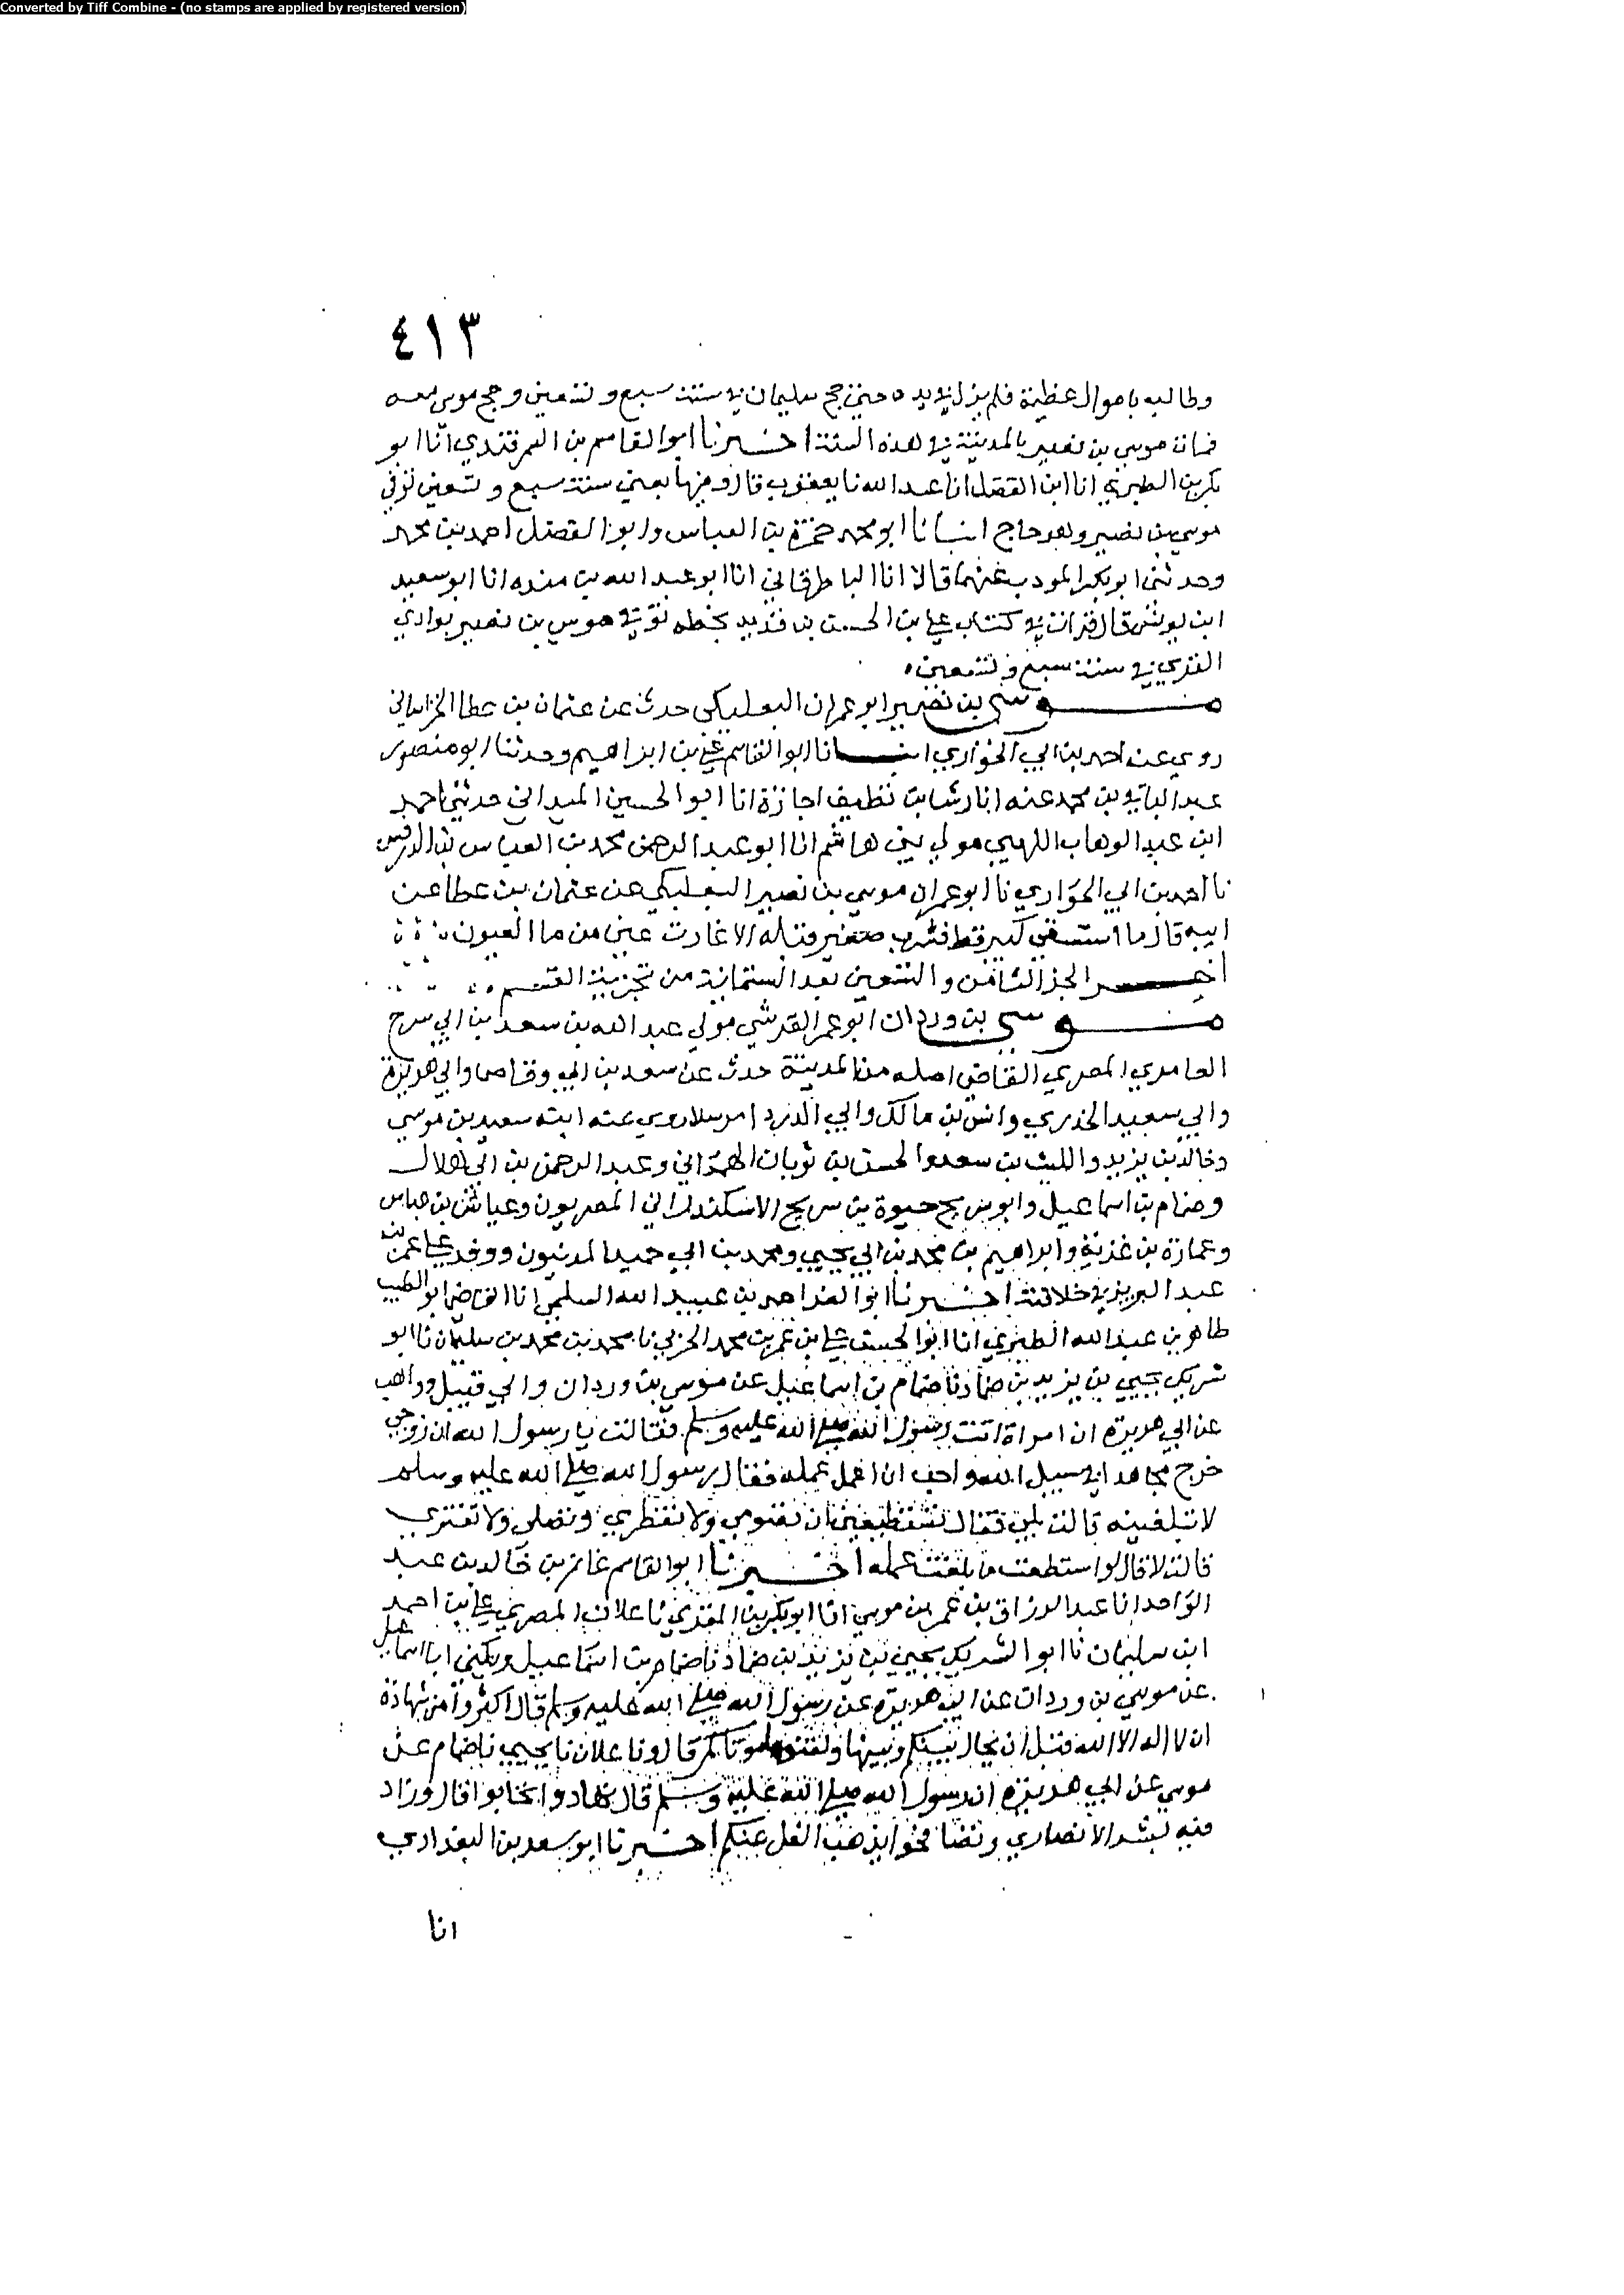 Converted by Tiff Combine - (no stamps are applied by registered version)
٤١٣
وطالبه باموال عظيمة فلم يزل في يده حتى حج سليمان في سنة سبع وتسعين وحج موسى معه
فمات موسى بن نصير بالمدينة في هذه السنة اخبرنا ابو القاسم بن السمرقندي انا ابو
بكر بن الطبري انا ابن الفضل انا عبد الله نا يعقوب قال وفيها يعني سنة سبع وتسعين توفي
موسى بن نصير وهو حاج انبانا ابو محمد حمزة بن العباس وابو الفضل احمد بن محمد
وحدثني ابو بكر المودب عنهما قالا انا الباطرقاني انا ابو عبد الله بن منده انا ابو سعيد
ابن يونس قال قرات في كتاب علي بن الحسن بن قديد بخطه توفي موسى بن نصير بوادي
القرى في سنة سبع وتسعين
موسى بن نصير ابو عمران البعلبكي حدث عن عثمان بن عطا الخراساني
روى عنه احمد بن ابي الحواري انبانا ابو القاسم علي بن ابراهيم وحدثنا ابو منصور
عبد الباقي بن محمد عنه انا رشا بن نظيف اجازة انا ابو الحسين الميداني حدثني احمد
ابن عبد الوهاب اللهبي مولى بني هاشم انا ابو عبد الرحمن محمد بن العباس بن الدرفس
نا احمد بن ابي الحواري نا ابو عمران موسى بن نصير البعلبكي عن عثمان بن عطا عن
ابيه قال ما استسقى كبير قط فشرب صغير قبله الا غارت عين من ما العيون
اخر الجز الثامن والتسعين بعد الستماية من تجزية القسم
موسى بن وردان ابو عمر القرشي مولى عبد الله بن سعد بن ابي سرح
العامري المصري القاضي اصله من المدينة حدث عن سعد بن ابي وقاص وابي هريرة
وابي سعيد الخدري وانس بن مالك وابي الدردا مرسلا روى عنه ابنه سعيد بن موسى
وخالد بن يزيد والليث بن سعد والحسن بن ثوبان الهمداني وعبد الرحمن بن ابي هلال
وضمام بن اسماعيل وابو سريح حيوة بن سريح الاسكندراني المصريون وعياش بن عباس
وعمارة بن غزية وابراهيم بن محمد بن ابي يحيى ومحمد بن ابي حميد المدنيون ووفد على عمر بن
عبد العزيز في خلافته اخبرنا ابو العز احمد بن عبيد الله السلمي انا القاضي ابو الطيب
طاهر بن عبد الله الطبري انا ابو الحسن علي بن عمر بن محمد الحربي نا محمد بن محمد بن سليمان نا ابو
شريك يحيى بن يزيد بن ضماد نا ضمام بن اسماعيل عن موسى بن وردان وابي قبيل وواهب
عن ابي هريرة ان امراة اتت رسول الله صلى الله عليه وسلم فقالت يا رسول الله ان زوجي
خرج مجاهدا في سبيل الله واحب ان اعمل عمله فقال رسول الله صلى الله عليه وسلم
لا تبلغينه قالت بلى فقال تستطيعين ان تقومي ولا تفطري وتصلي ولا تفتري
قالت لا قال لو استطعت ما بلغت عمله اخبرنا ابو القاسم غانم بن خالد بن عبد
الواحد انا عبد الرزاق بن عمر بن موسى انا ابو بكر بن المقري نا علان المصري علي بن احمد
ابن سليمان نا ابو الشريك يحيى بن يزيد بن ضماد نا ضمام بن اسماعيل ويكنى ابا اسماعيل
عن موسى بن وردان عن ابي هريرة عن رسول الله صلى الله عليه وسلم قال اكثروا من شهادة
ان لا اله الا الله قبل ان يحال بينكم وبينها ولقنوها موتاكم قال ونا علان نا يحيى نا ضمام عن
موسى عن ابي هريرة ان رسول الله صلى الله عليه وسلم قال تهادوا تحابوا قال وزاد
فيه بشر الانصاري وتصافحوا يذهب الغل عنكم اخبرنا ابو سعد بن البغدادي
انا